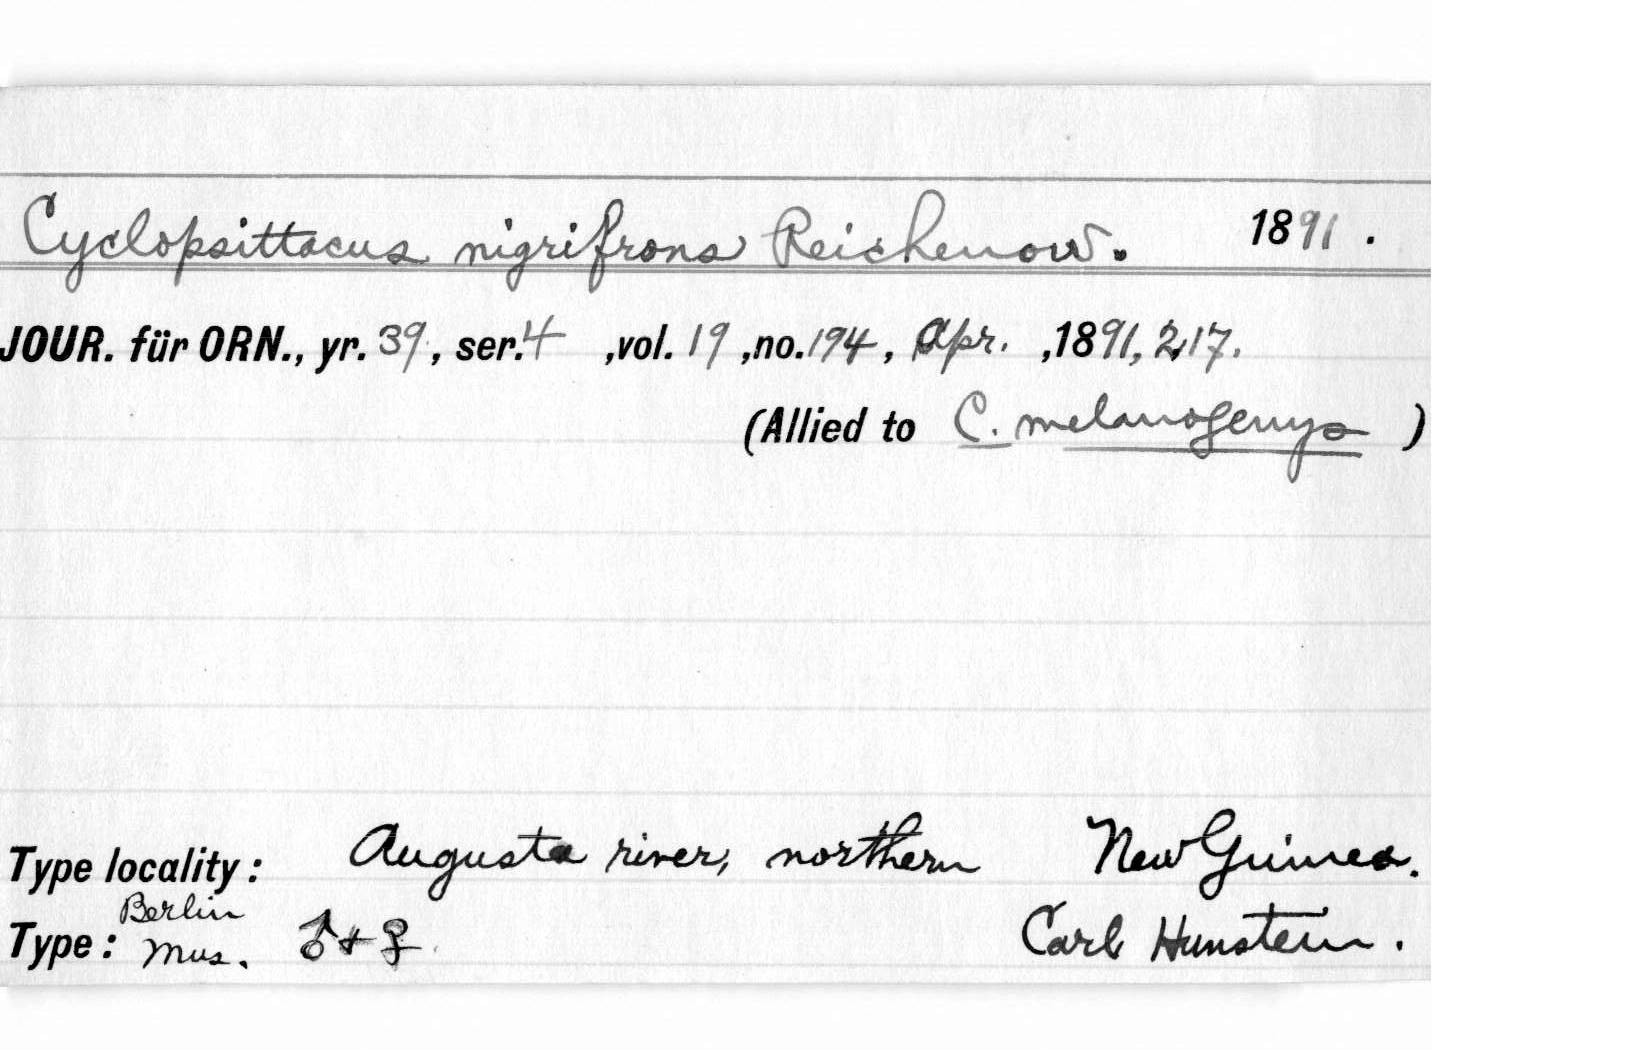 Cyclopsittacus nigrifrons Reichenow. 1891.
JOUR. für ORN., yr. 39, ser. 4, vol. 19, no. 194, Apr., 1891, 217.
(Allied to C. melanogenys)
Type locality: Augusta river, northern New Guinea.
Type: Berlin Mus. ♂ + ♀. Carl Hunstein.